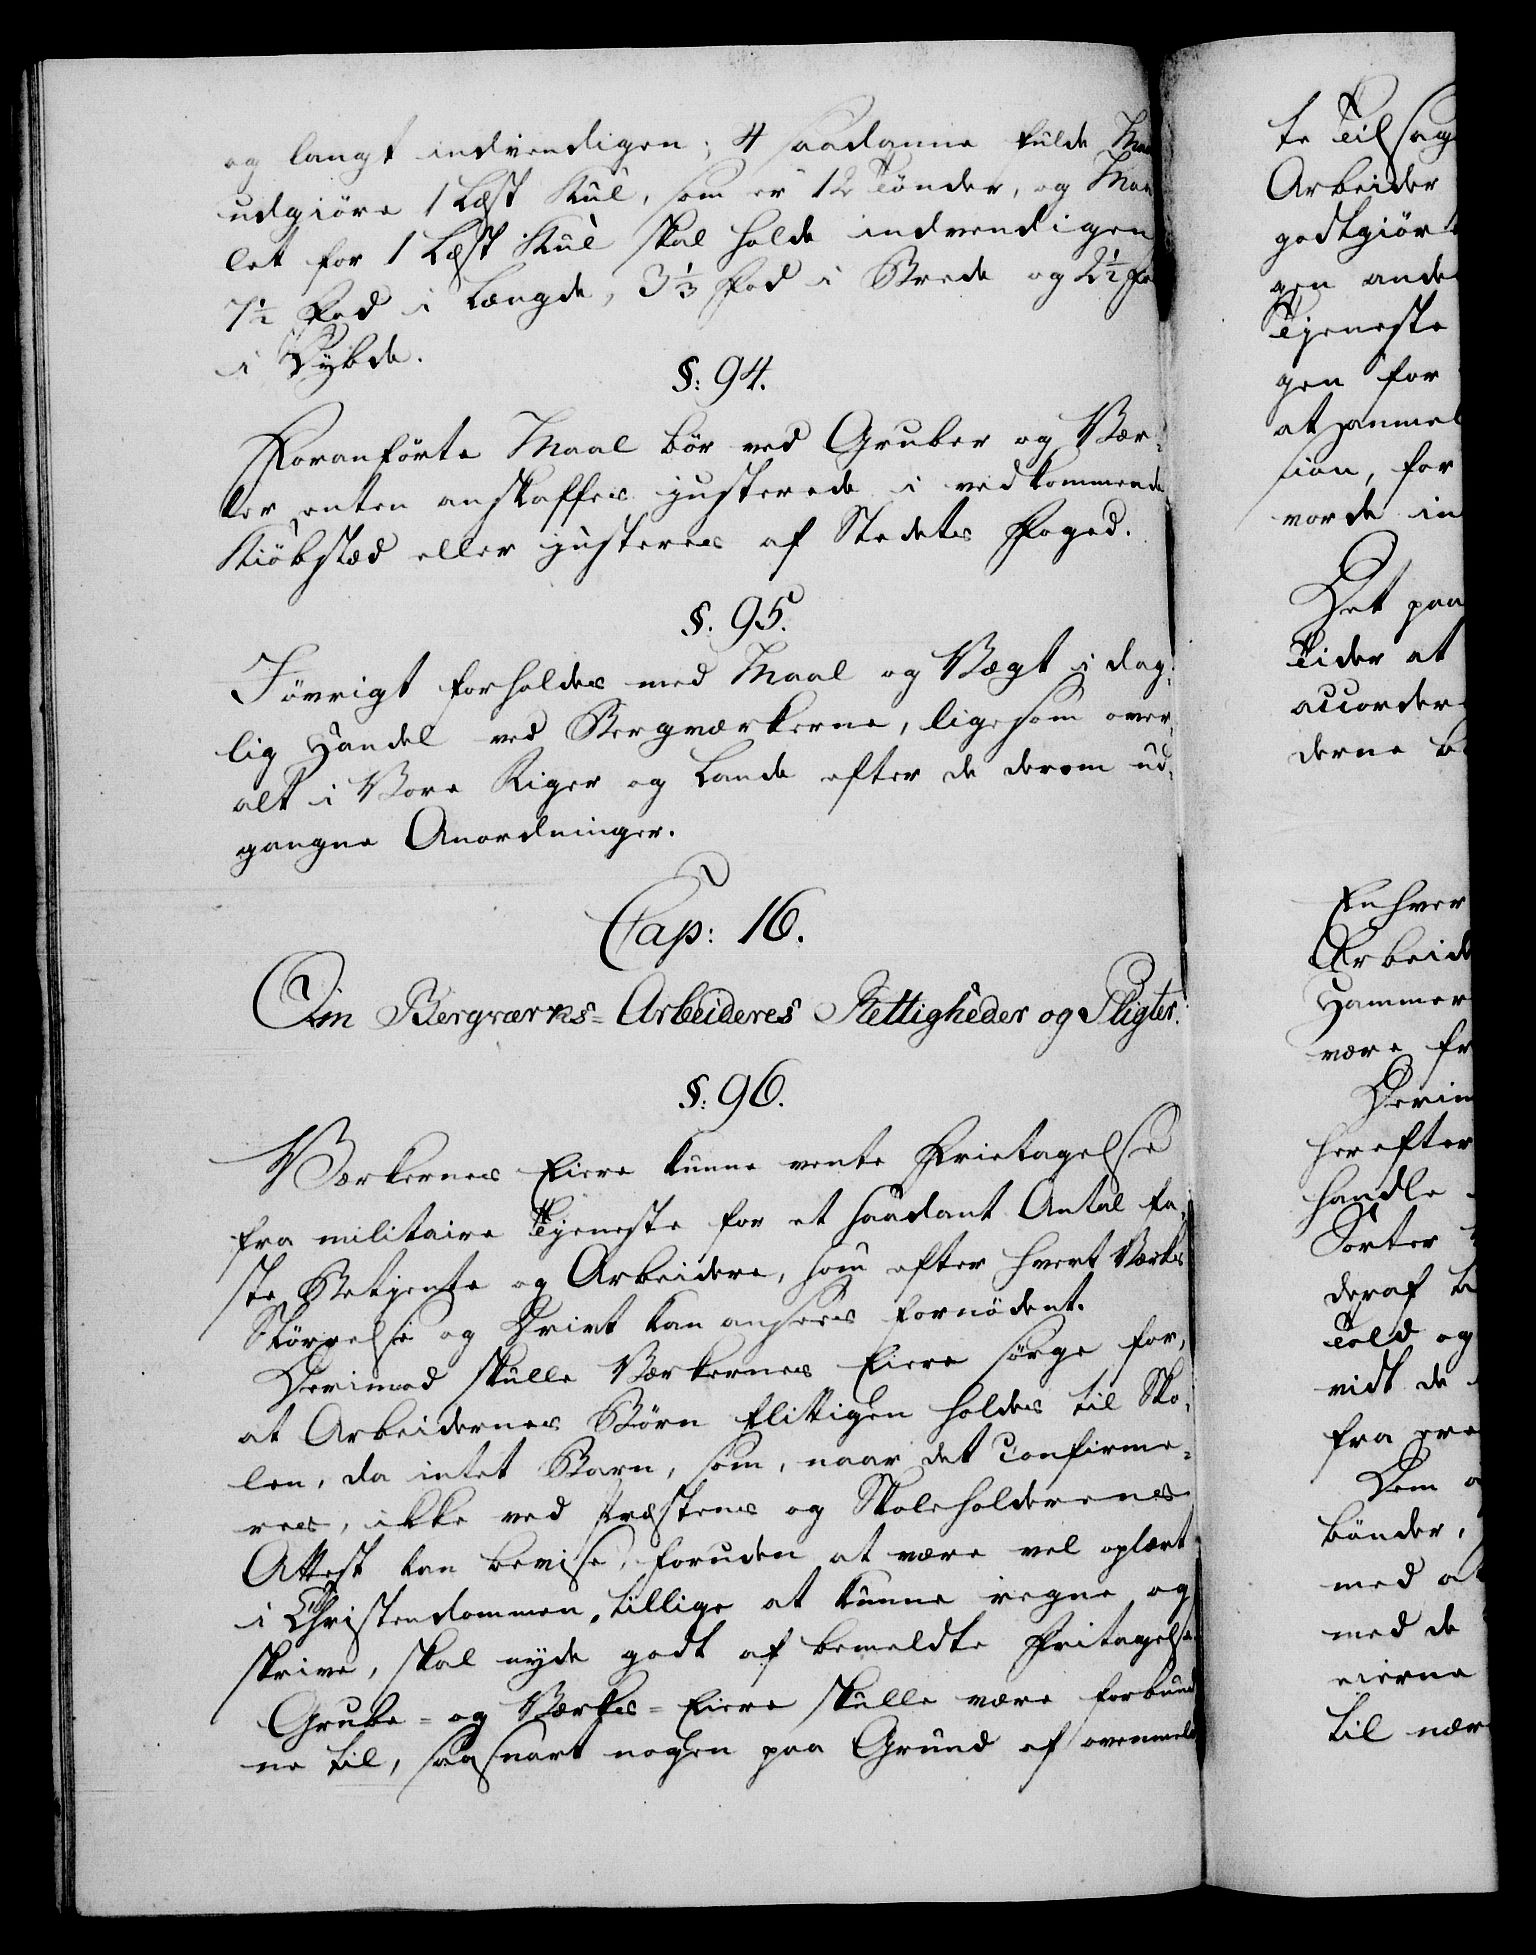 og langt indvendigen; 4 saadanne fulde Maa
udgiöre 1 Læst Kul, som er 12 Tönder, og Maa
let for 1 Læst Kul skal holde indvendigen
7½ Fod i Længde, 3⅓ Fod i Brede og 2½ Fo
i Dybde.
§: 94.
Foranförte Maal bör ved Gruber og Vær-
ker enten anskaffes justerede i vedkommende
Kiöbstæd eller justeres af Stedets Foged.
§. 95.
Iövrigt forholdes med Maal og Vægt i dag-
lig Handel ved Bergværkerne, ligesom over-
alt i Vore Riger og Lande efter de derom ud-
gangne Anordninger.
Cap: 16.
Om Bergværks-Arbeideres Rettigheder og Pligter.
§: 96.
Værkernes Eiere kunne vente Frietagelse
fra militaire Tjeneste for et saadant Antal fa-
ste Betjente og Arbeidere, som efter hvert Værkes
Störrelse og Drivt kan ansees fornödent.
Derimod skulle Værkernes Eiere sörge for,
at Arbeidernes Börn flittigen holdes til Sko-
len, da intet Barn, som, naar det Confirme-
res, ikke ved Præstens og Skoleholderens
Attest kan bevise, foruden at være vel oplært
i Christendommen, tillige at kunne regne og
skrive, skal nyde godt af bemeldte Fritagelse.
Grube- og Værks-Eiere skulle være forbund
ne til, saasnart nogen paa Grund af ovenmeld
te Tilsag
Arbeider
godtgiör
gen ande
Tjeneste
gen for
at anmel
sion, for
vorde in
Det paa
Tider at
accorder
derne b
Enhver
Arbeid
Hammer
være fr
Derim
herefter
handle
Sorter
deraf b
Told og
vidt de
fra
Dem
bönder,
med a
med de
eierne
til nær